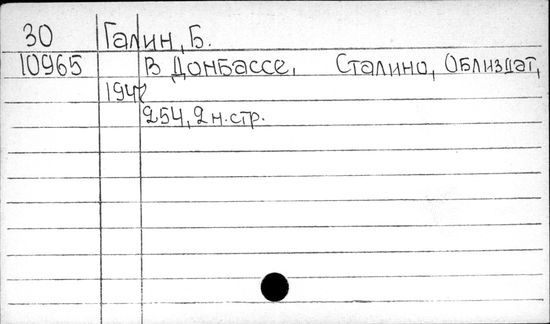 30 Галин, Б.
10965 В Донбассе. Сталино, Облиздат,
194
254, 2 н.стр.